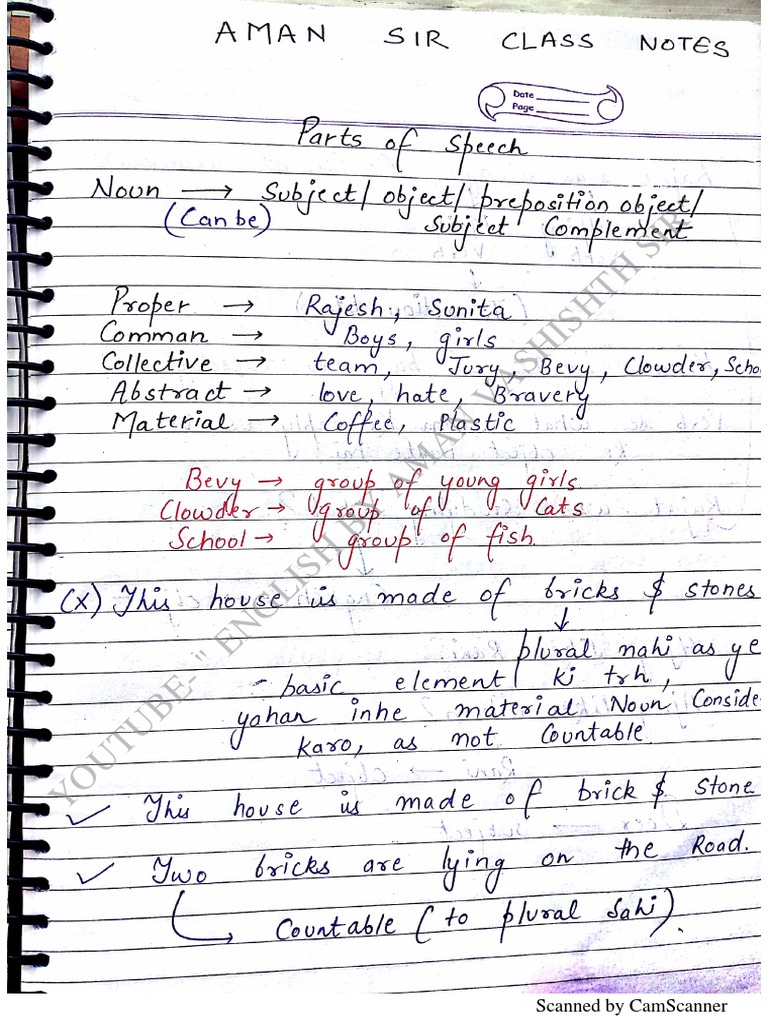 AMAN SIR CLASS NOTES
Date
Page
Parts of Speech
Noun → Subject/ object/ preposition object/
(Can be) Subject Complement
Proper → Rajesh, Sunita
Comman → Boys, girls
Collective → team, Jury, Bevy, Clowder, Scho
Abstract → love, hate, Bravery
Material → Coffee, Plastic
Bevy → group of young girls
Clowder → group of Cats
School → group of fish.
(X) This house is made of bricks & stones
↓
plural nahi as ye
- basic element ki trh,
yahan inhe material Noun Conside
karo, as not Countable
✓ This house is made of brick & stone
✓ Two bricks are lying on the Road.
→ Countable (to plural sahi).
YOUTUBE-" ENGLISH BY AMAN VASHISHTH SIR
Scanned by CamScanner